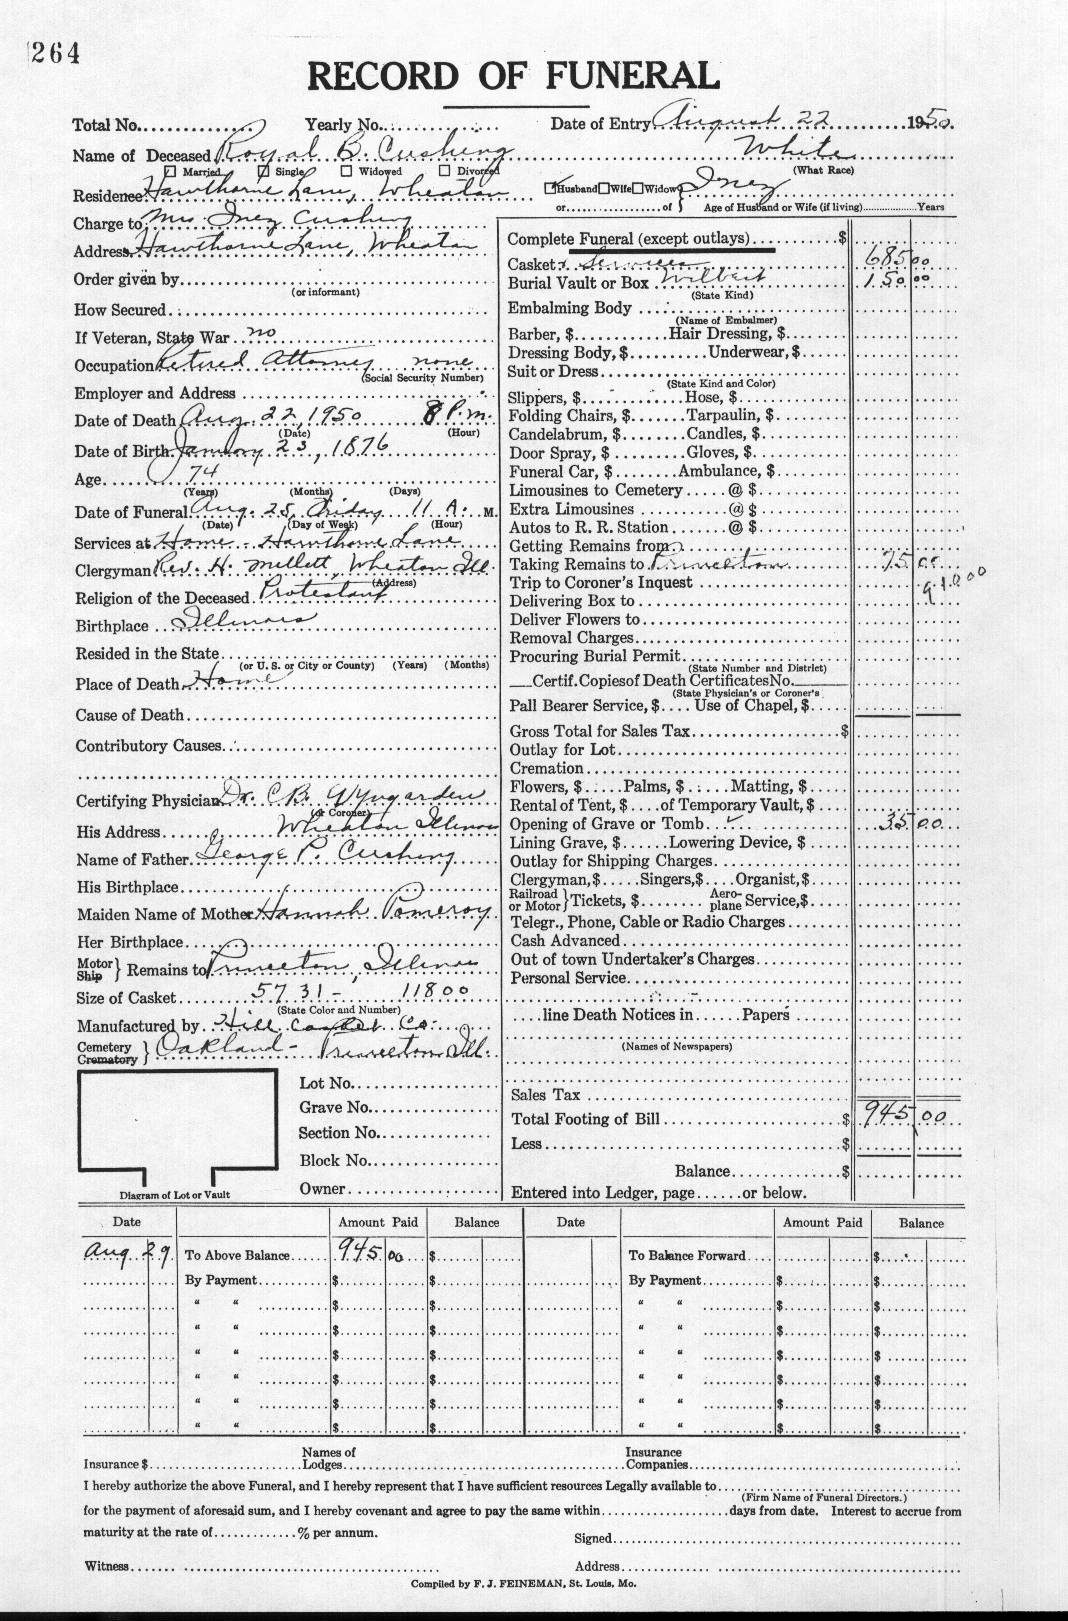 264
RECORD OF FUNERAL
Total No. Yearly No. Date of Entry August 22 1950.
Name of Deceased Royal B. Cushing White
Married Single Widowed Divorced (What Race)
Residence Hawthorne Lane, Wheaton Husband Wife Widow or of } Inez
Age of Husband or Wife (if living) Years
Charge to Mrs. Inez Cushing
Address Hawthorne Lane, Wheaton
Order given by
(or informant)
How Secured
If Veteran, State War no
Occupation Retired Attorney none
(Social Security Number)
Employer and Address
Date of Death Aug. 22, 1950 8 P.m.
(Date) (Hour)
Date of Birth January 23, 1876
Age 74
(Years) (Months) (Days)
Date of Funeral Aug. 25, Friday 11 A. M.
(Date) (Day of Week) (Hour)
Services at Home - Hawthorne Lane
Clergyman Rev. H. Millett, Wheaton Ill.
(Address)
Religion of the Deceased Protestant
Birthplace Illinois
Resided in the State
(or U. S. or City or County) (Years) (Months)
Place of Death Home
Cause of Death
Contributory Causes
Certifying Physician Dr. C.B. Wyngarden
(or Coroner)
His Address Wheaton Illinois
Name of Father George P. Cushing
His Birthplace
Maiden Name of Mother Hannah Pomeroy
Her Birthplace
Motor Ship } Remains to Princeton, Illinois
Size of Casket 57 31 - 11800
(State Color and Number)
Manufactured by Hill Casket Co.
Cemetery Crematory } Oakland - Princeton Ill.
Lot No.
Grave No.
Section No.
Block No.
Owner
Diagram of Lot or Vault
Complete Funeral (except outlays) $
Casket & Services 685 00
Burial Vault or Box Wilbert 150 00
(State Kind)
Embalming Body
(Name of Embalmer)
Barber, $ Hair Dressing, $
Dressing Body, $ Underwear, $
Suit or Dress
(State Kind and Color)
Slippers, $ Hose, $
Folding Chairs, $ Tarpaulin, $
Candelabrum, $ Candles, $
Door Spray, $ Gloves, $
Funeral Car, $ Ambulance, $
Limousines to Cemetery @ $
Extra Limousines @ $
Autos to R. R. Station @ $
Getting Remains from
Taking Remains to Princeton 75 00
Trip to Coroner's Inquest 910 00
Delivering Box to
Deliver Flowers to
Removal Charges
Procuring Burial Permit
(State Number and District)
Certif. Copies of Death Certificates No.
(State Physician's or Coroner's
Pall Bearer Service, $ Use of Chapel, $
Gross Total for Sales Tax $
Outlay for Lot
Cremation
Flowers, $ Palms, $ Matting, $
Rental of Tent, $ of Temporary Vault, $
Opening of Grave or Tomb 35 00
Lining Grave, $ Lowering Device, $
Outlay for Shipping Charges
Clergyman, $ Singers, $ Organist, $
Railroad or Motor } Tickets, $ Aero-plane Service, $
Telegr., Phone, Cable or Radio Charges
Cash Advanced
Out of town Undertaker's Charges
Personal Service
line Death Notices in Papers
(Names of Newspapers)
Sales Tax
Total Footing of Bill $ 945 00
Less $
Balance $
Entered into Ledger, page or below.
Date Amount Paid Balance Date Amount Paid Balance
Aug 29 To Above Balance 945 00 $ To Balance Forward $
By Payment $ $ By Payment $ $
" " $ $ " " $ $
" " $ $ " " $ $
" " $ $ " " $ $
" " $ $ " " $ $
" " $ $ " " $ $
" " $ $ " " $ $
Insurance $ Names of Lodges Insurance Companies
I hereby authorize the above Funeral, and I hereby represent that I have sufficient resources Legally available to
(Firm Name of Funeral Directors.)
for the payment of aforesaid sum, and I hereby covenant and agree to pay the same within days from date. Interest to accrue from
maturity at the rate of % per annum.
Signed
Witness Address
Compiled by F. J. FEINEMAN, St. Louis, Mo.